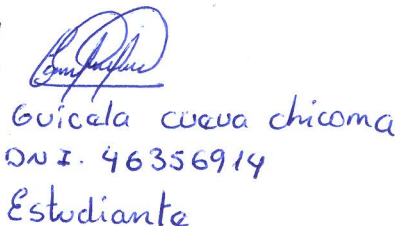 Guicela cueva chicoma
DNI. 46356914
Estudiante